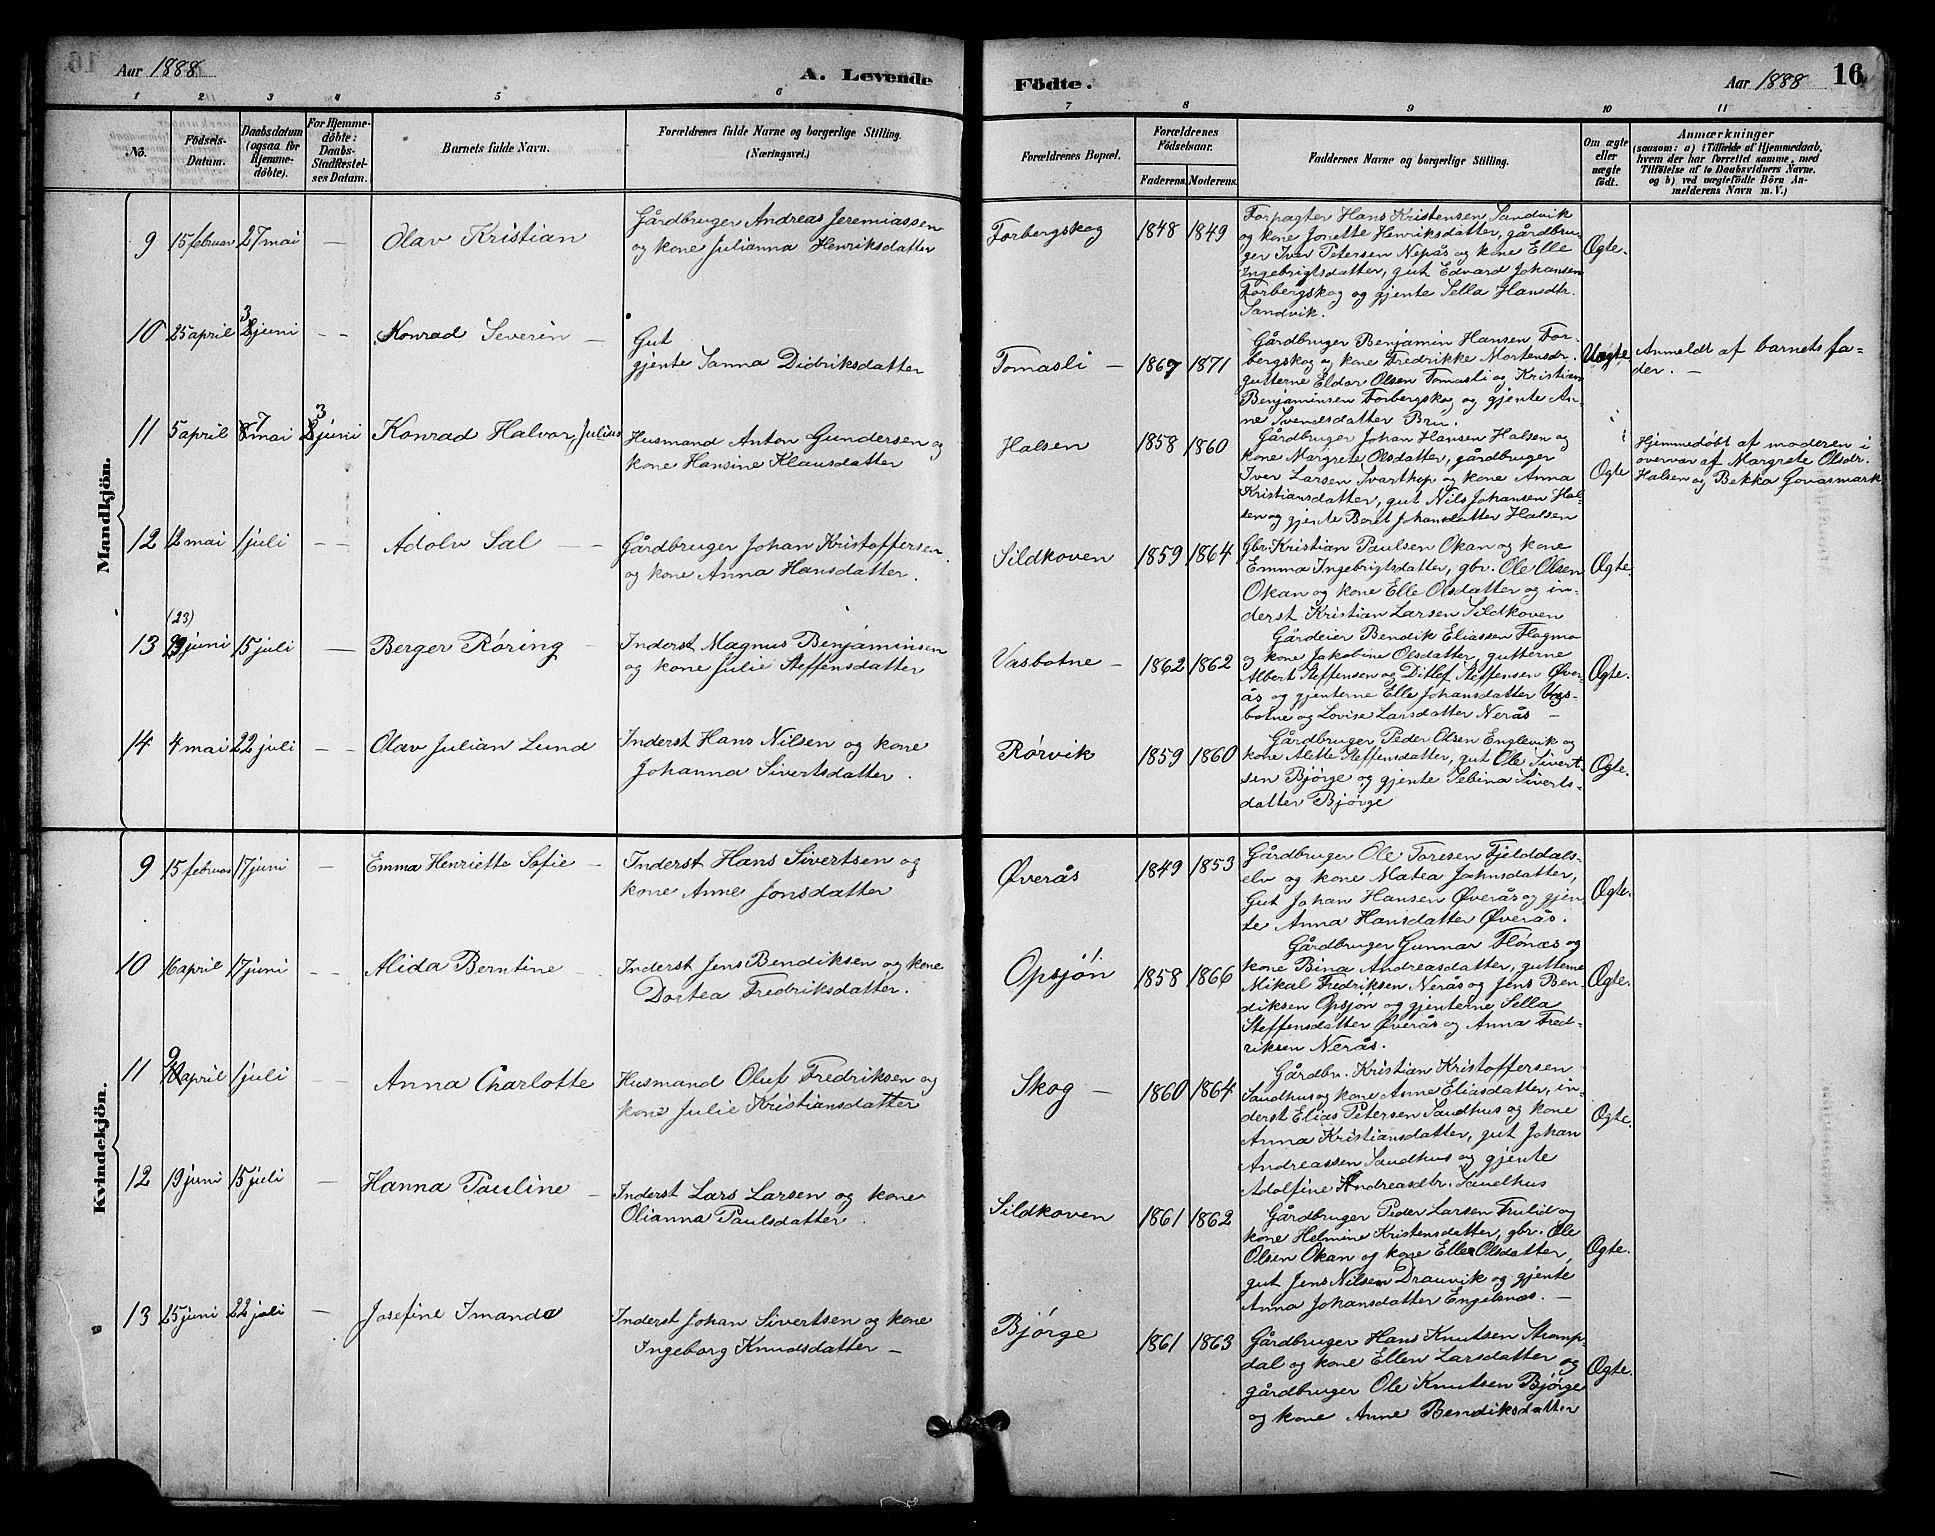 Aar 1888
A. Levende
Födte.
Aar 1888
16
1 2 3 4 5 6 7 8 9 10 11
No.
Födsels-
Datum.
Daabsdatum
(ogsaa for
Hjemme-
döbte).
For Hjemme-
döbte:
Daabs-
Stadfæstel-
ses Datum.
Barnets fulde Navn.
Forældrenes fulde Navne og borgerlige Stilling.
(Næringsvei.)
Forældrenes Bopæl.
Forældrenes
Födselsaar.
Faderens. Moderens.
Faddernes Navne og borgerlige Stilling.
Om ægte
eller
uægte
født.
Anmærkninger
(saasom: a) i Tilfælde af Hjemmedaab,
hvem der har forrettet samme, med
Tilföielse af to Daabsvidners Navne,
og b) ved uægtefödte Börn An-
melderens Navn m. V.)
Mandkjön.
9 15 februar 27 mai — Olav Kristian
Gårdbruger Andreas Jeremiassen
og kone Julianna Henriksdatter
Forbergskog 1848 1849
Forpagter Hans Kristensen Sandvik
og kone Jonette Henriksdatter, gårdbru-
ger Iver Petersen Nepås og kone Elle
Ingebrigtsdatter, gut Edvard Johansen
Forbergskog og gjente Sella Hansdtr.
Sandvik.
Ægte.
10 25 april 3 juni - - Konrad Severin —
Gut
gjente Sanna Didriksdatter
Tomasli — 1867 1871
Gårdbruger Benjamin Hansen For-
bergskog og kone Fredrikke Mortensdr.
gutterne Eldor Olsen Tomasli og Kristian
Benjaminsen Forbergskog og gjente An-
ne Svendsdatter Bru.
Uægte
Anmeldt af barnets fa-
der. —
11 5 april 7 mai 3 juni Konrad Halvor Julius
Husmand Anton Gundersen og
kone Hansine Klausdatter
Halsen 1858 1860
Gårdbruger Johan Hansen Halsen og
kone Margrete Olsdatter, gårdbruger
Iver Larsen Svarthop og kone Anna
Kristiansdatter, gut Nils Johansen Hal-
sen og gjente Beret Johansdatter Halsen
Ægte
Hjemmedøbt af moderen i
overvær af Margrete Olsdr.
Halsen og Bekka Govasmark
12 12 mai 1 juli - - Adolv Sal — —
Gårdbruger Johan Kristoffersen
og kone Anna Hansdatter.
Sildkoven 1859 1864
Gbr. Kristian Paulsen Okan og kone
Emma Ingebrigtsdatter, gbr. Ole Olsen
Okan og kone Elle Olsdatter og in-
derst Kristian Larsen Sildkoven
Ægte.
(23)
13 juni 15 juli — Berger Røring —
Inderst Magnus Benjaminsen
og kone Julie Steffensdatter
Vasbotne — 1862 1862
Gårdeier Bendik Eliassen Flagmo
og kone Jakobine Olsdatter, gutterne
Albert Steffensen og Ditlef Steffensen Øver-
ås og gjenterne Elle Johansdatter Vas-
botne og Lovise Larsdatter Nerås —
Ægte.
14 4 mai 22 juli - - Olav Julian Lund
Inderst Hans Nilsen og kone
Johanna Sivertsdatter.
Rørvik 1859 1860
Gårdbruger Peder Olsen Englevik og
kone Alette Steffensdatter, gut Ole Sivert-
sen Bjørge og gjente Sebina Siverts-
datter Bjørge
Ægte.
Kvindekjön.
9 15 februar 17 juni — Emma Henriette Sofie —
Inderst Hans Sivertsen og
kone Anne Jonsdatter
Øverås 1849 1853
Gårdbruger Ole Toresen Fjelddals-
elv og kone Matea Jahnsdatter,
Gut Johan Hansen Øverås og gjen-
te Anna Hansdatter Øverås.
Ægte.
10 16 april 17 juni - - Alida Berntine —
Inderst Jens Bendiksen og kone
Dortea Fredriksdatter.
Opsjøn 1858 1866
Gårdbruger Gunnar Flønæs og
kone Bina Andreasdatter, gutterne
Mikal Fredriksen Nerås og Jens Ben-
diksen Opsjøn og gjenterne Sella
Steffensdatter Øverås og Anna Fred-
riksen Nerås.
Ægte.
11 9 april 1 juli - - Anna Charlotte
Husmand Oluf Fredriksen og
kone Julie Kristiansdatter
Skog — 1860 1864
Gårdbr. Kristian Kristoffersen
Sandhus og kone Anne Eliasdatter, in-
derst Elias Petersen Sandhus og kone
Anna Kristiansdatter, gut Johan
Andreassen Sandhus og gjente
Adolfine Andreasdtr. Sandhus
Ægte.
12 19 juni 15 juli — Hanna Pauline —
Inderst Lars Larsen og kone
Olianna Paulsdatter.
Sildkoven 1861 1862
Gårdbruger Peder Larsen Trulid og
kone Helmine Kristensdatter, gbr. Ole
Olsen Okan og kone Elle Olsdatter,
gut Jens Nilsen Drauvik og gjente
Anna Johansdatter Engelsnæs. —
Ægte.
13 25 juni 22 juli — Josefine Imanda
Inderst Johan Sivertsen og kone
Ingeborg Knudsdatter —
Bjørge 1861 1863
Gårdbruger Hans Knutsen Stromp-
dal og kone Ellen Larsdatter og
gårdbruger Ole Knutsen Bjørge
og kone Anne Bendiksdatter
Ægte.